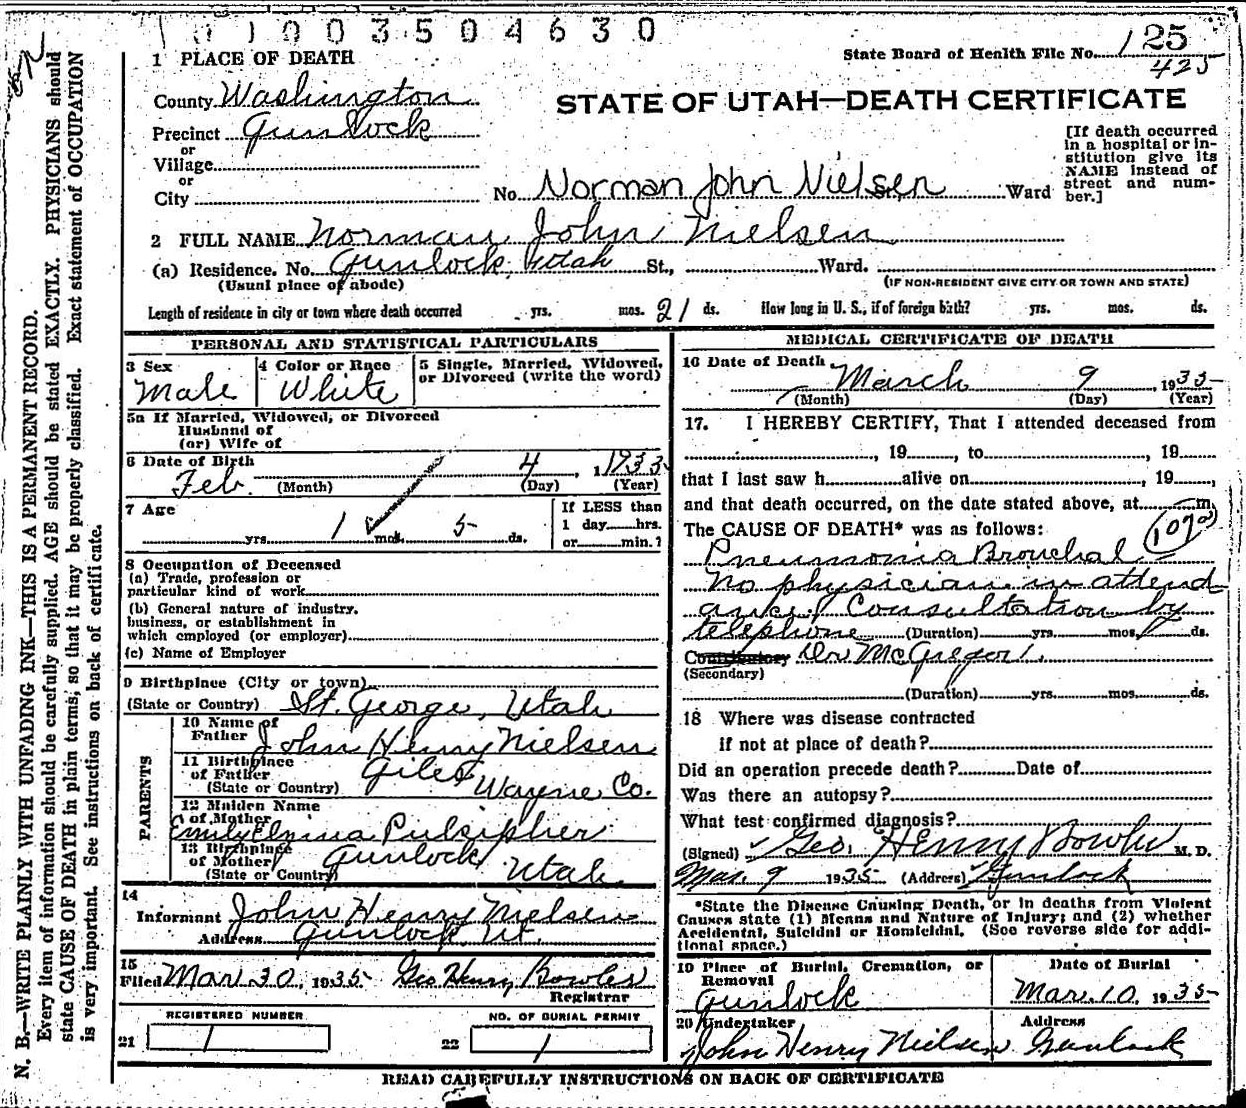 1 0 0 3 5 0 4 6 3 0
1 PLACE OF DEATH
State Board of Health File No. 1 25
425
County Washington
STATE OF UTAH—DEATH CERTIFICATE
Precinct Gunlock
or
Village
or
City
No. Norman John Nielsen Ward
[If death occurred in a hospital or in-
stitution give its
NAME instead of
street and num-
ber.]
2 FULL NAME Norman John Nielsen
(a) Residence. No. Gunlock, Utah St., Ward.
(Usual place of abode)
(IF NON-RESIDENT GIVE CITY OR TOWN AND STATE)
Length of residence in city or town where death occurred yrs. mos. 21 ds. How long in U. S., if of foreign birth? yrs. mos. ds.
PERSONAL AND STATISTICAL PARTICULARS
3 Sex
Male
4 Color or Race
White
5 Single, Married, Widowed,
or Divorced (write the word)
5a If Married, Widowed, or Divorced
Husband of
(or) Wife of
6 Date of Birth
Feb. 4, 1935
(Month) (Day) (Year)
7 Age
yrs. 1 mos. 5 ds.
If LESS than
1 day hrs.
or min.?
8 Occupation of Deceased
(a) Trade, profession or
particular kind of work
(b) General nature of industry,
business, or establishment in
which employed (or employer)
(c) Name of Employer
9 Birthplace (City or town)
(State or Country) St. George, Utah
PARENTS
10 Name of
Father John Henry Nielsen
11 Birthplace
of Father Giles
(State or Country) Wayne Co.
12 Maiden Name
of Mother
Emily Pulsipher
13 Birthplace
of Mother Gunlock
(State or Country) Utah
14
Informant John Henry Nielsen
Address Gunlock, Ut.
15
Filed Mar 30 1935 Geo Henry Bowler
Registrar
REGISTERED NUMBER
21 1
NO. OF BURIAL PERMIT
22 1
MEDICAL CERTIFICATE OF DEATH
16 Date of Death
March 9, 1935
(Month) (Day) (Year)
17. I HEREBY CERTIFY, That I attended deceased from
, 19 , to , 19
that I last saw h alive on , 19 ,
and that death occurred, on the date stated above, at m.
The CAUSE OF DEATH* was as follows:
107a
Pneumonia Bronchal
No physician in attend
ance. Consultation by
telephone (Duration) yrs. mos. ds.
Contributory Dr. McGregor.
(Secondary)
(Duration) yrs. mos. ds.
18 Where was disease contracted
if not at place of death?
Did an operation precede death? Date of
Was there an autopsy?
What test confirmed diagnosis?
(Signed) Geo. Henry Bowler M. D.
Mar. 9 1935 (Address) Gunlock
*State the Disease Causing Death, or in deaths from Violent
Causes state (1) Means and Nature of Injury; and (2) whether
Accidental, Suicidal or Homicidal. (See reverse side for addi-
tional space.)
19 Place of Burial, Cremation, or
Removal
Gunlock
Date of Burial
Mar. 10, 1935
20 Undertaker
John Henry Nielsen
Address
Gunlock
READ CAREFULLY INSTRUCTIONS ON BACK OF CERTIFICATE
N. B.—WRITE PLAINLY WITH UNFADING INK—THIS IS A PERMANENT RECORD.
Every item of information should be carefully supplied. AGE should be stated EXACTLY. PHYSICIANS should
state CAUSE OF DEATH in plain terms, so that it may be properly classified. Exact statement of OCCUPATION
is very important. See instructions on back of certificate.